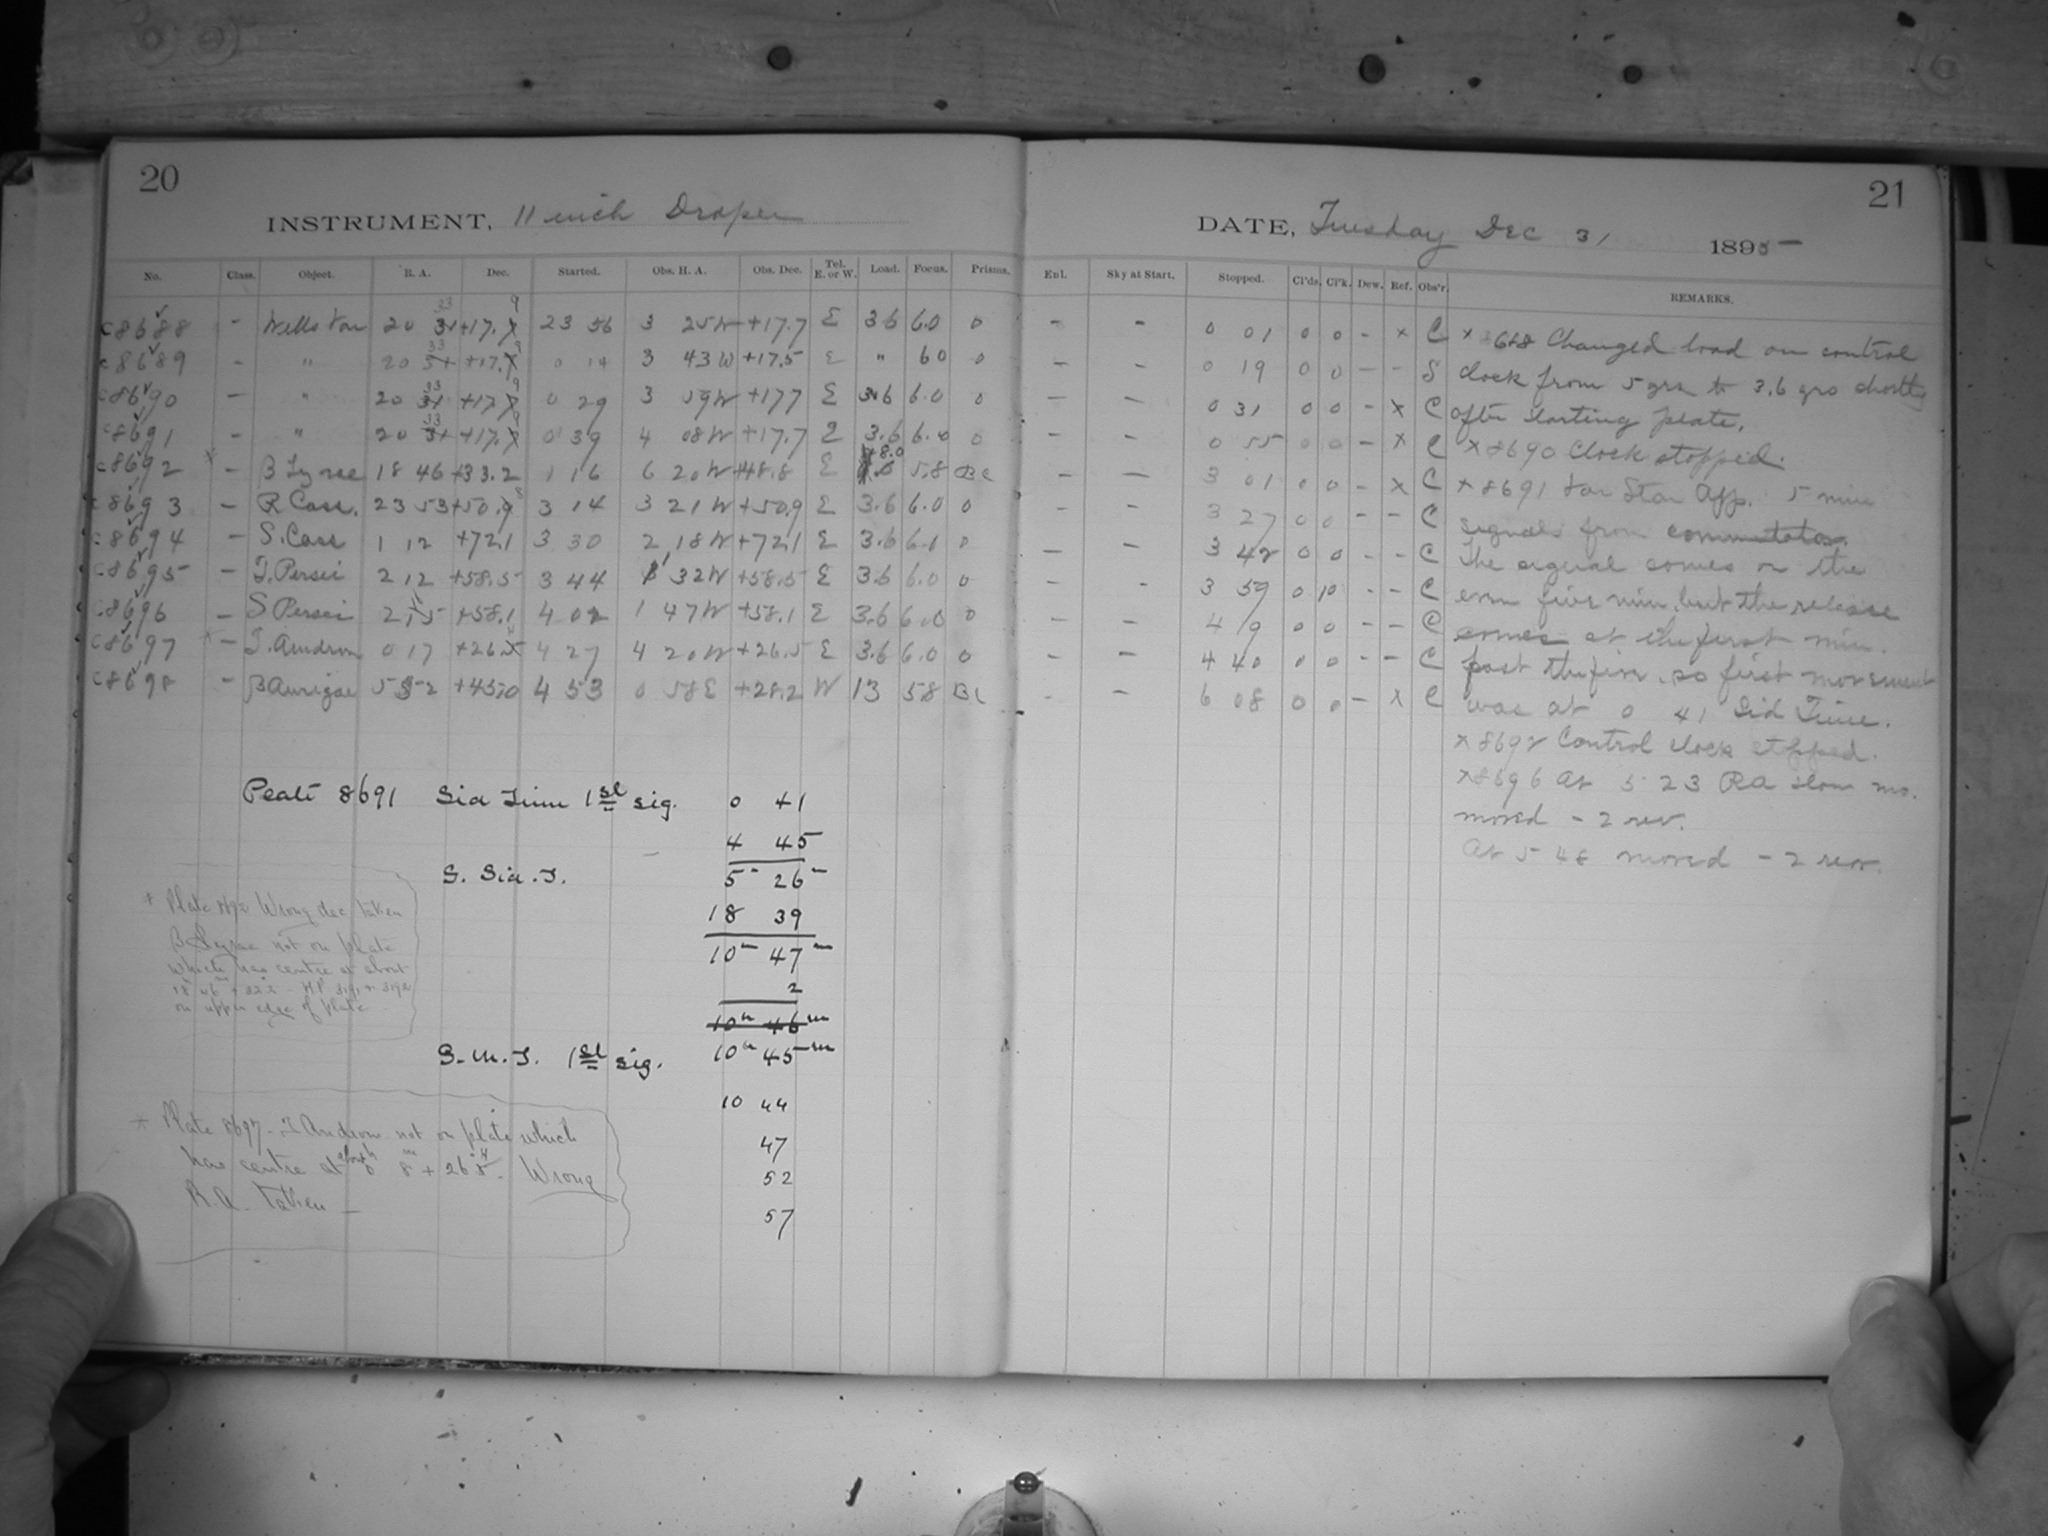 20
INSTRUMENT, 11 inch Draper
No. Class. Object. R. A. Dec. Started. Obs. H. A. Obs. Dec. Tel. E. or W. Load. Focus. Prisms.
c8688 - 20 33 +17.9 23 56 3 25W +17.7 E 3.6 6.0 0
c8689 - " 20 33 +17.9 0 14 3 43W +17.5 E " 60 0
c8690 - " 20 33 +17.9 0 29 3 59W +177 E 3.6 6.0 0
c8691 - " 20 33 +17.9 0 39 4 08W +17.7 E 3.6 6.0 0
c8692 - β Lyrae 18 46 +33.2 1 16 6 20W +48.8 E 8.0 5.8 BC
c8693 - R Cass. 23 53 +50.8 3 14 3 21W +50.9 E 3.6 6.0 0
c8694 - S. Cass 1 12 +721 3 30 2 18W +721 E 3.6 6.1 0
c8695 - T. Persei 2 12 +58.5 3 44 1 32W +58.5 E 3.6 6.0 0
c8696 - S Persei 2 15 +58.1 4 02 1 47W +58.1 E 3.6 6.0 0
c8697 * - T. Androm 0 17 +26.4 4 27 4 20W +26.5 E 3.6 6.0 0
c8698 - β Aurigae 5 52 +45.0 4 53 0 58E +28.2 W 13 58 BC
Peate 8691 Sid Time 1st sig. 0 41
4 45
S. Sid. T. 5 26
18 39
10 47 m
2
10 46 m
S. M. T. 1st sig. 10 45 m
10 44
47
52
57
* Plate 8692 Wrong dec taken
β Lyrae not on plate
which has centre at about
on upper edge of plate
* Plate 8697 - T Androm not on plate which
has centre at about 0h 8m + 26.4. Wrong
R. A. taken -
21
DATE, Tuesday Dec 31 1895
Enl. Sky at Start. Stopped. Cl'ds. Cl'k. Dew. Ref. Obs'r. REMARKS.
- - 0 01 0 0 - x C
- - 0 19 0 0 - - S
- - 0 31 0 0 - x C
- - 0 55 0 0 - x C
- - 3 01 0 0 - x C
- - 3 27 0 0 - - C
- - 3 42 0 0 - - C
- - 3 59 0 10 - - C
- - 4 19 0 0 - - C
- - 4 40 0 0 - - C
- - 6 08 0 0 - x C
x 8688 Changed load on control
clock from 5 grs to 3.6 grs shortly
after starting plate.
x 8690 Clock stopped.
x 8691 for Star App. 5 min
signals from commutator.
The signal comes on the
even five min. but the release
comes at the first min.
past the five, so first movement
was at 0 41 Sid Time.
x 8692 Control clock stopped.
x 8696 At 5 23 RA slow mo.
moved - 2 rev.
At 5 48 moved - 2 rev.